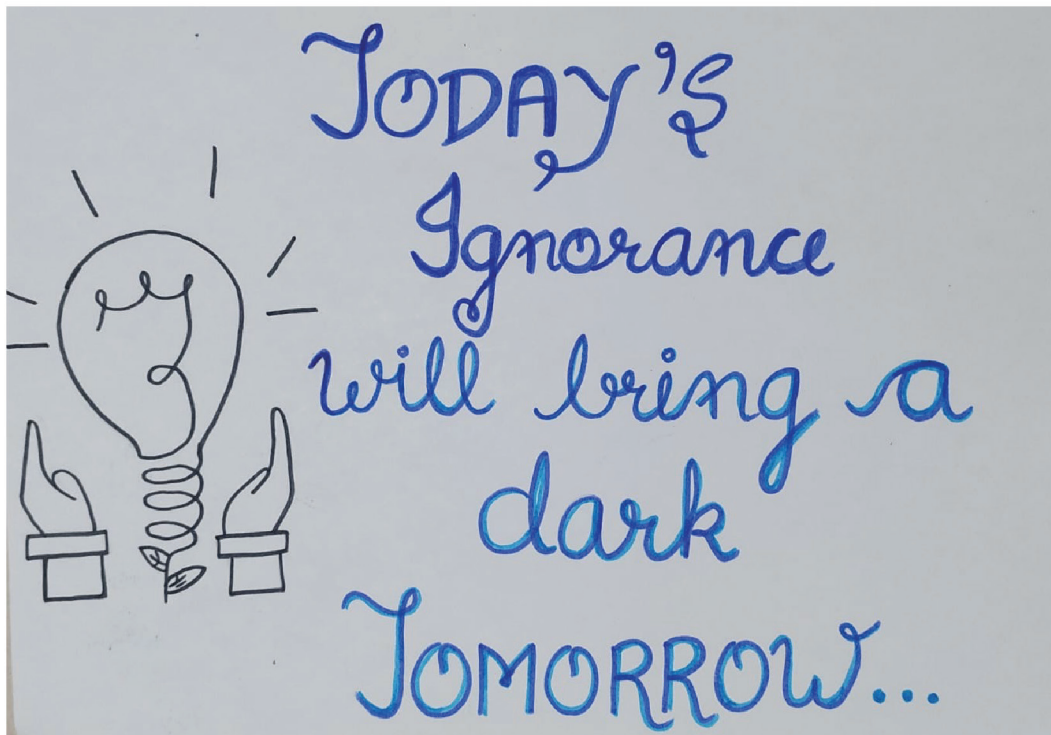 TODAY'S
Ignorance
will bring a
dark
TOMORROW...